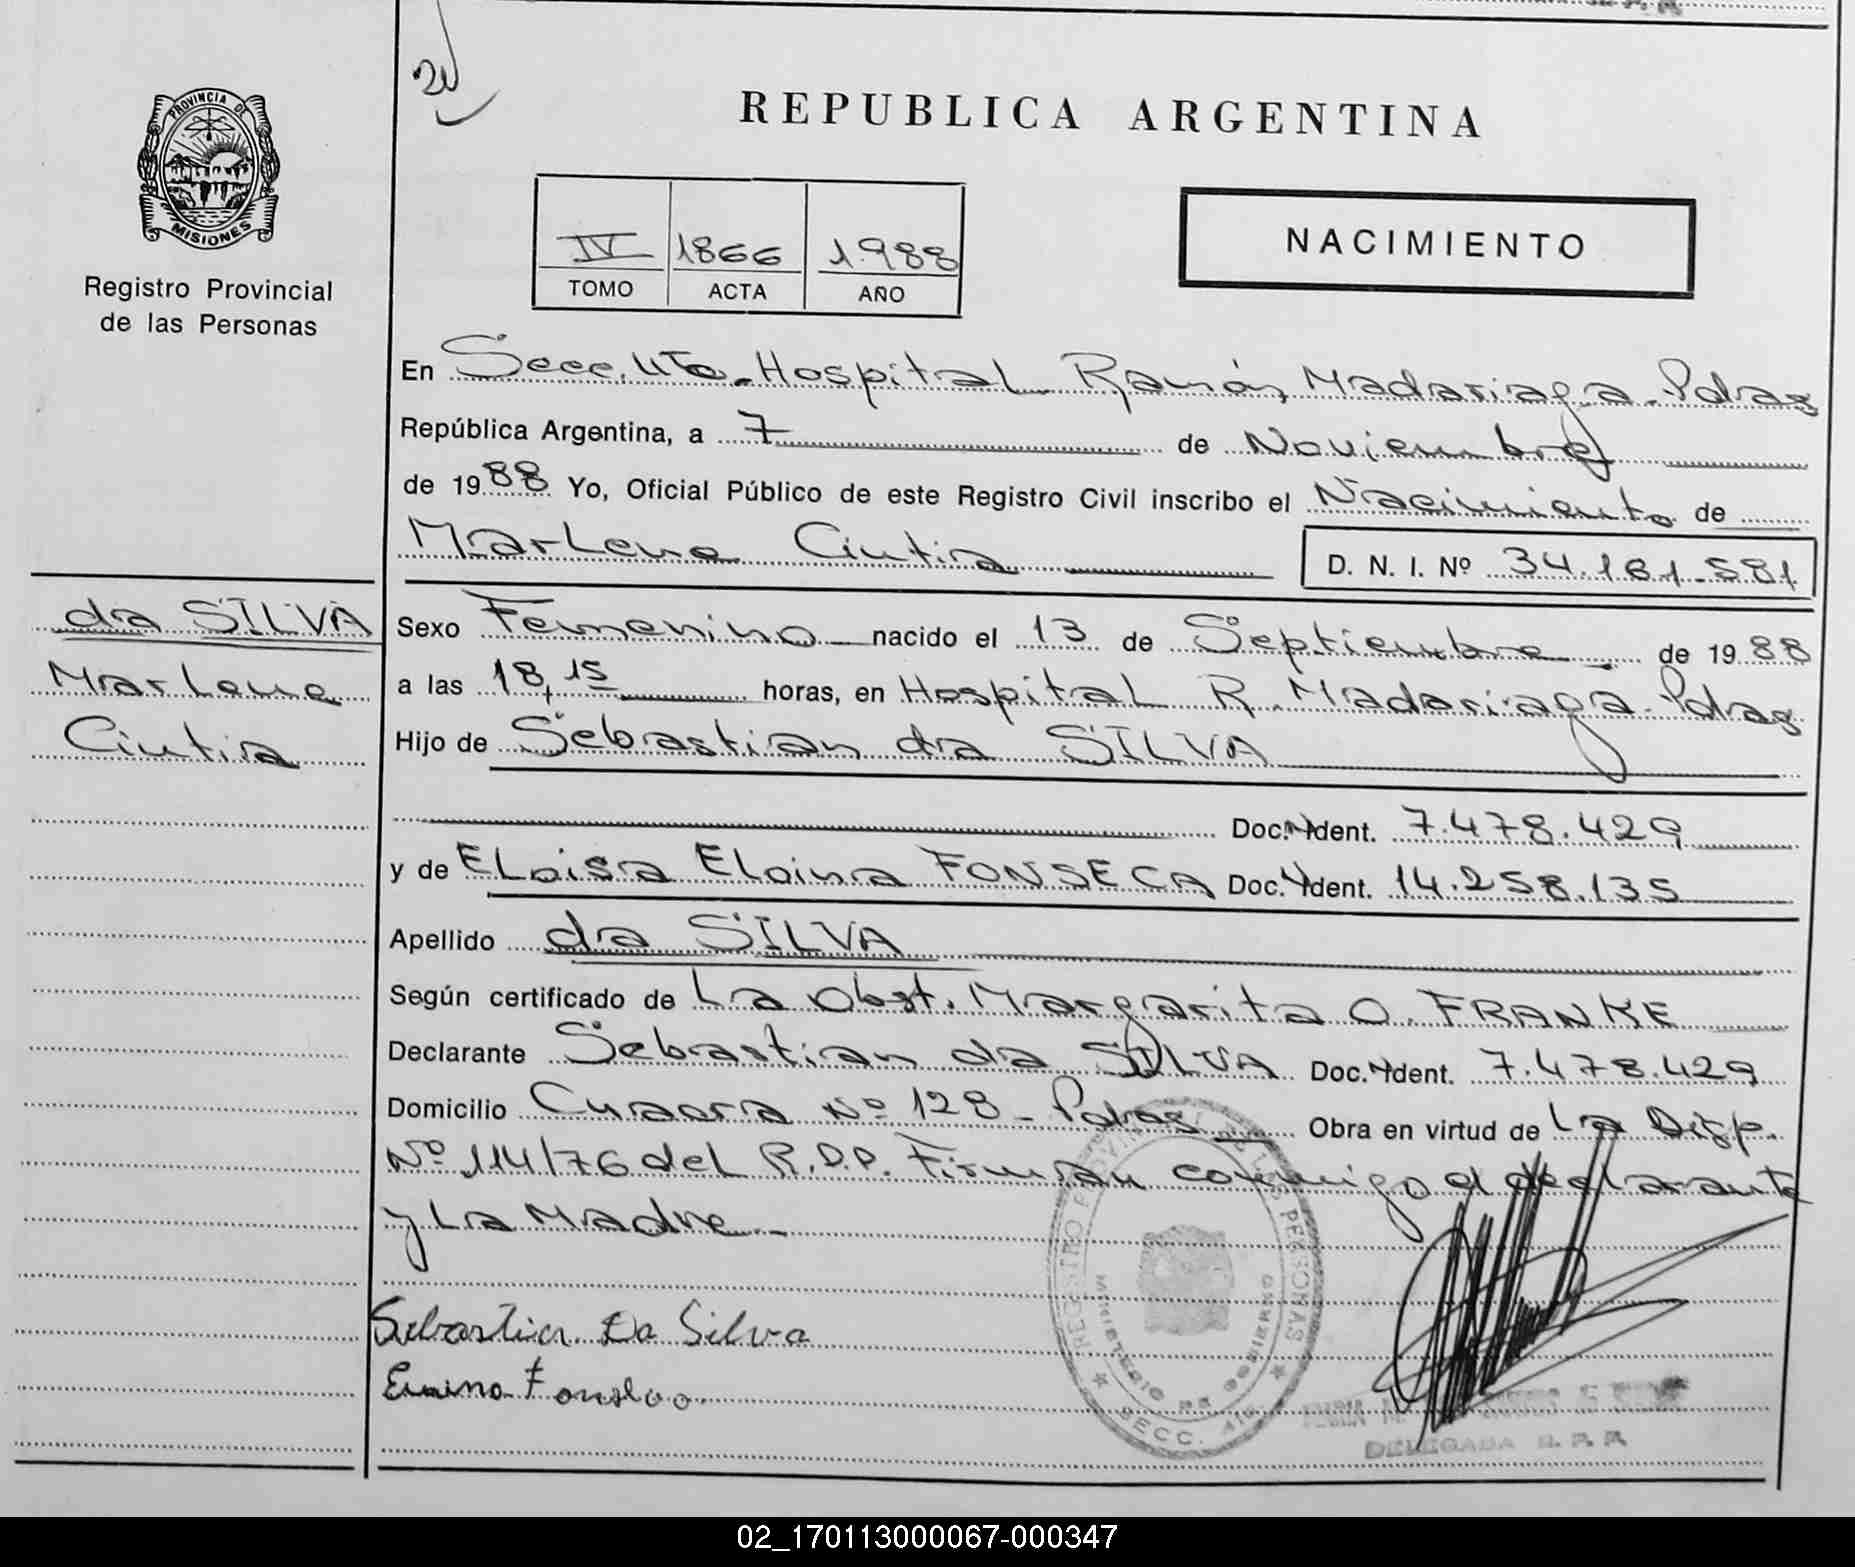 REPUBLICA ARGENTINA
PROVINCIA DE
MISIONES
Registro Provincial
de las Personas
IV 1866 1988
TOMO ACTA AÑO
NACIMIENTO
En Secc. 4Ta. Hospital Ramón Madariaga. Pdas
República Argentina, a 7 de Noviembre
de 1988 Yo, Oficial Público de este Registro Civil inscribo el Nacimiento de
Marlene Cintia D. N. I. Nº 34.181.581
da SILVA
Marlene
Cintia
Sexo Femenino nacido el 13 de Septiembre de 1988
a las 18,15 horas, en Hospital R. Madariaga. Pdas
Hijo de Sebastian da SILVA
Doc. Ident. 7.478.429
y de ELoisa ELoina FONSECA Doc. Ident. 14.258.135
Apellido da SILVA
Según certificado de La Obst. Margarita O. FRANKE
Declarante Sebastian da SILVA Doc. Ident. 7.478.429
Domicilio Nº 128 - Pdas Obra en virtud de La Disp.
Nº 114/76 del R.P.P. Firman conmigo el declarante
y La Madre
Sebastian Da Silva
REGISTRO PROVINCIAL DE LAS PERSONAS
MINISTERIO DE GOBIERNO
SECC. 4ta
DELEGADA R. P. P.
02_170113000067-000347